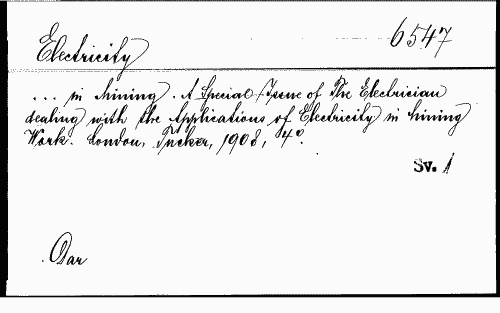 6547
Electricity
... in Mining. A Special Issue of The Electrician
dealing with the Applications of Electricity in Mining
Work. London, Tucker, 1908, 4°.
Sv. 1
Dar